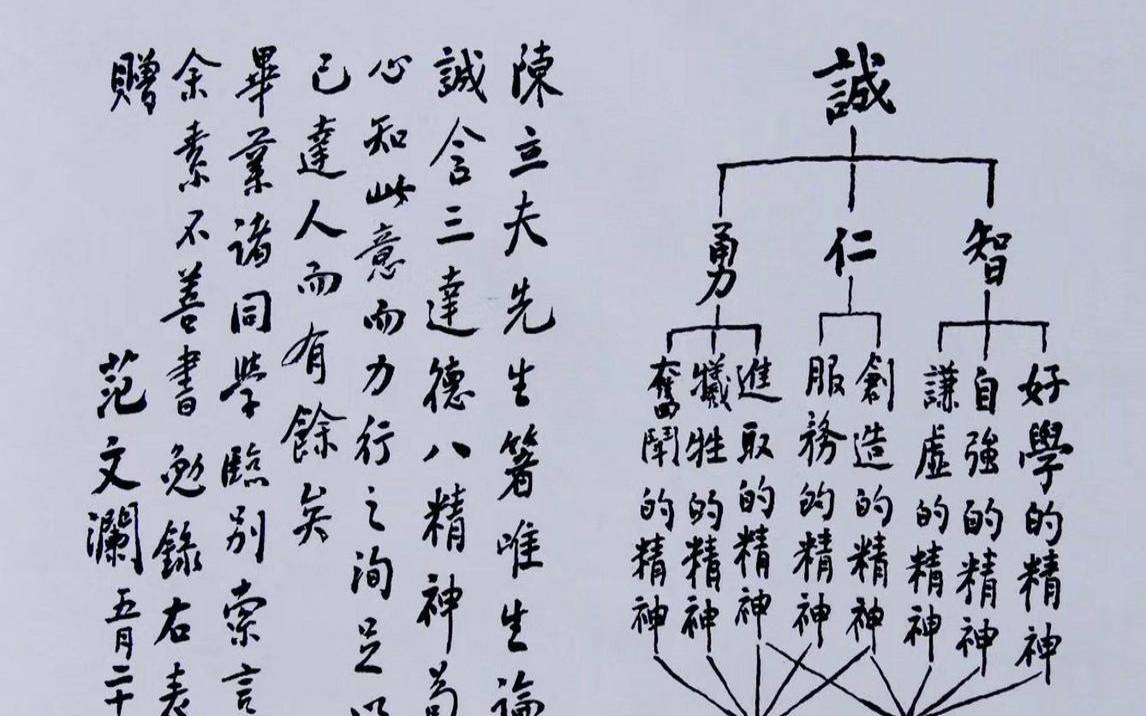 誠
智
仁
勇
好學的精神
自強的精神
謙虛的精神
創造的精神
服務的精神
進取的精神
犧牲的精神
奮鬭的精神
陳立夫先生箸唯生論
誠含三達德八精神苟
心知此意而力行之洵足以
己達人而有餘矣
畢業諸同學臨別索言
余素不善書勉錄右表
贈
范文瀾五月二十